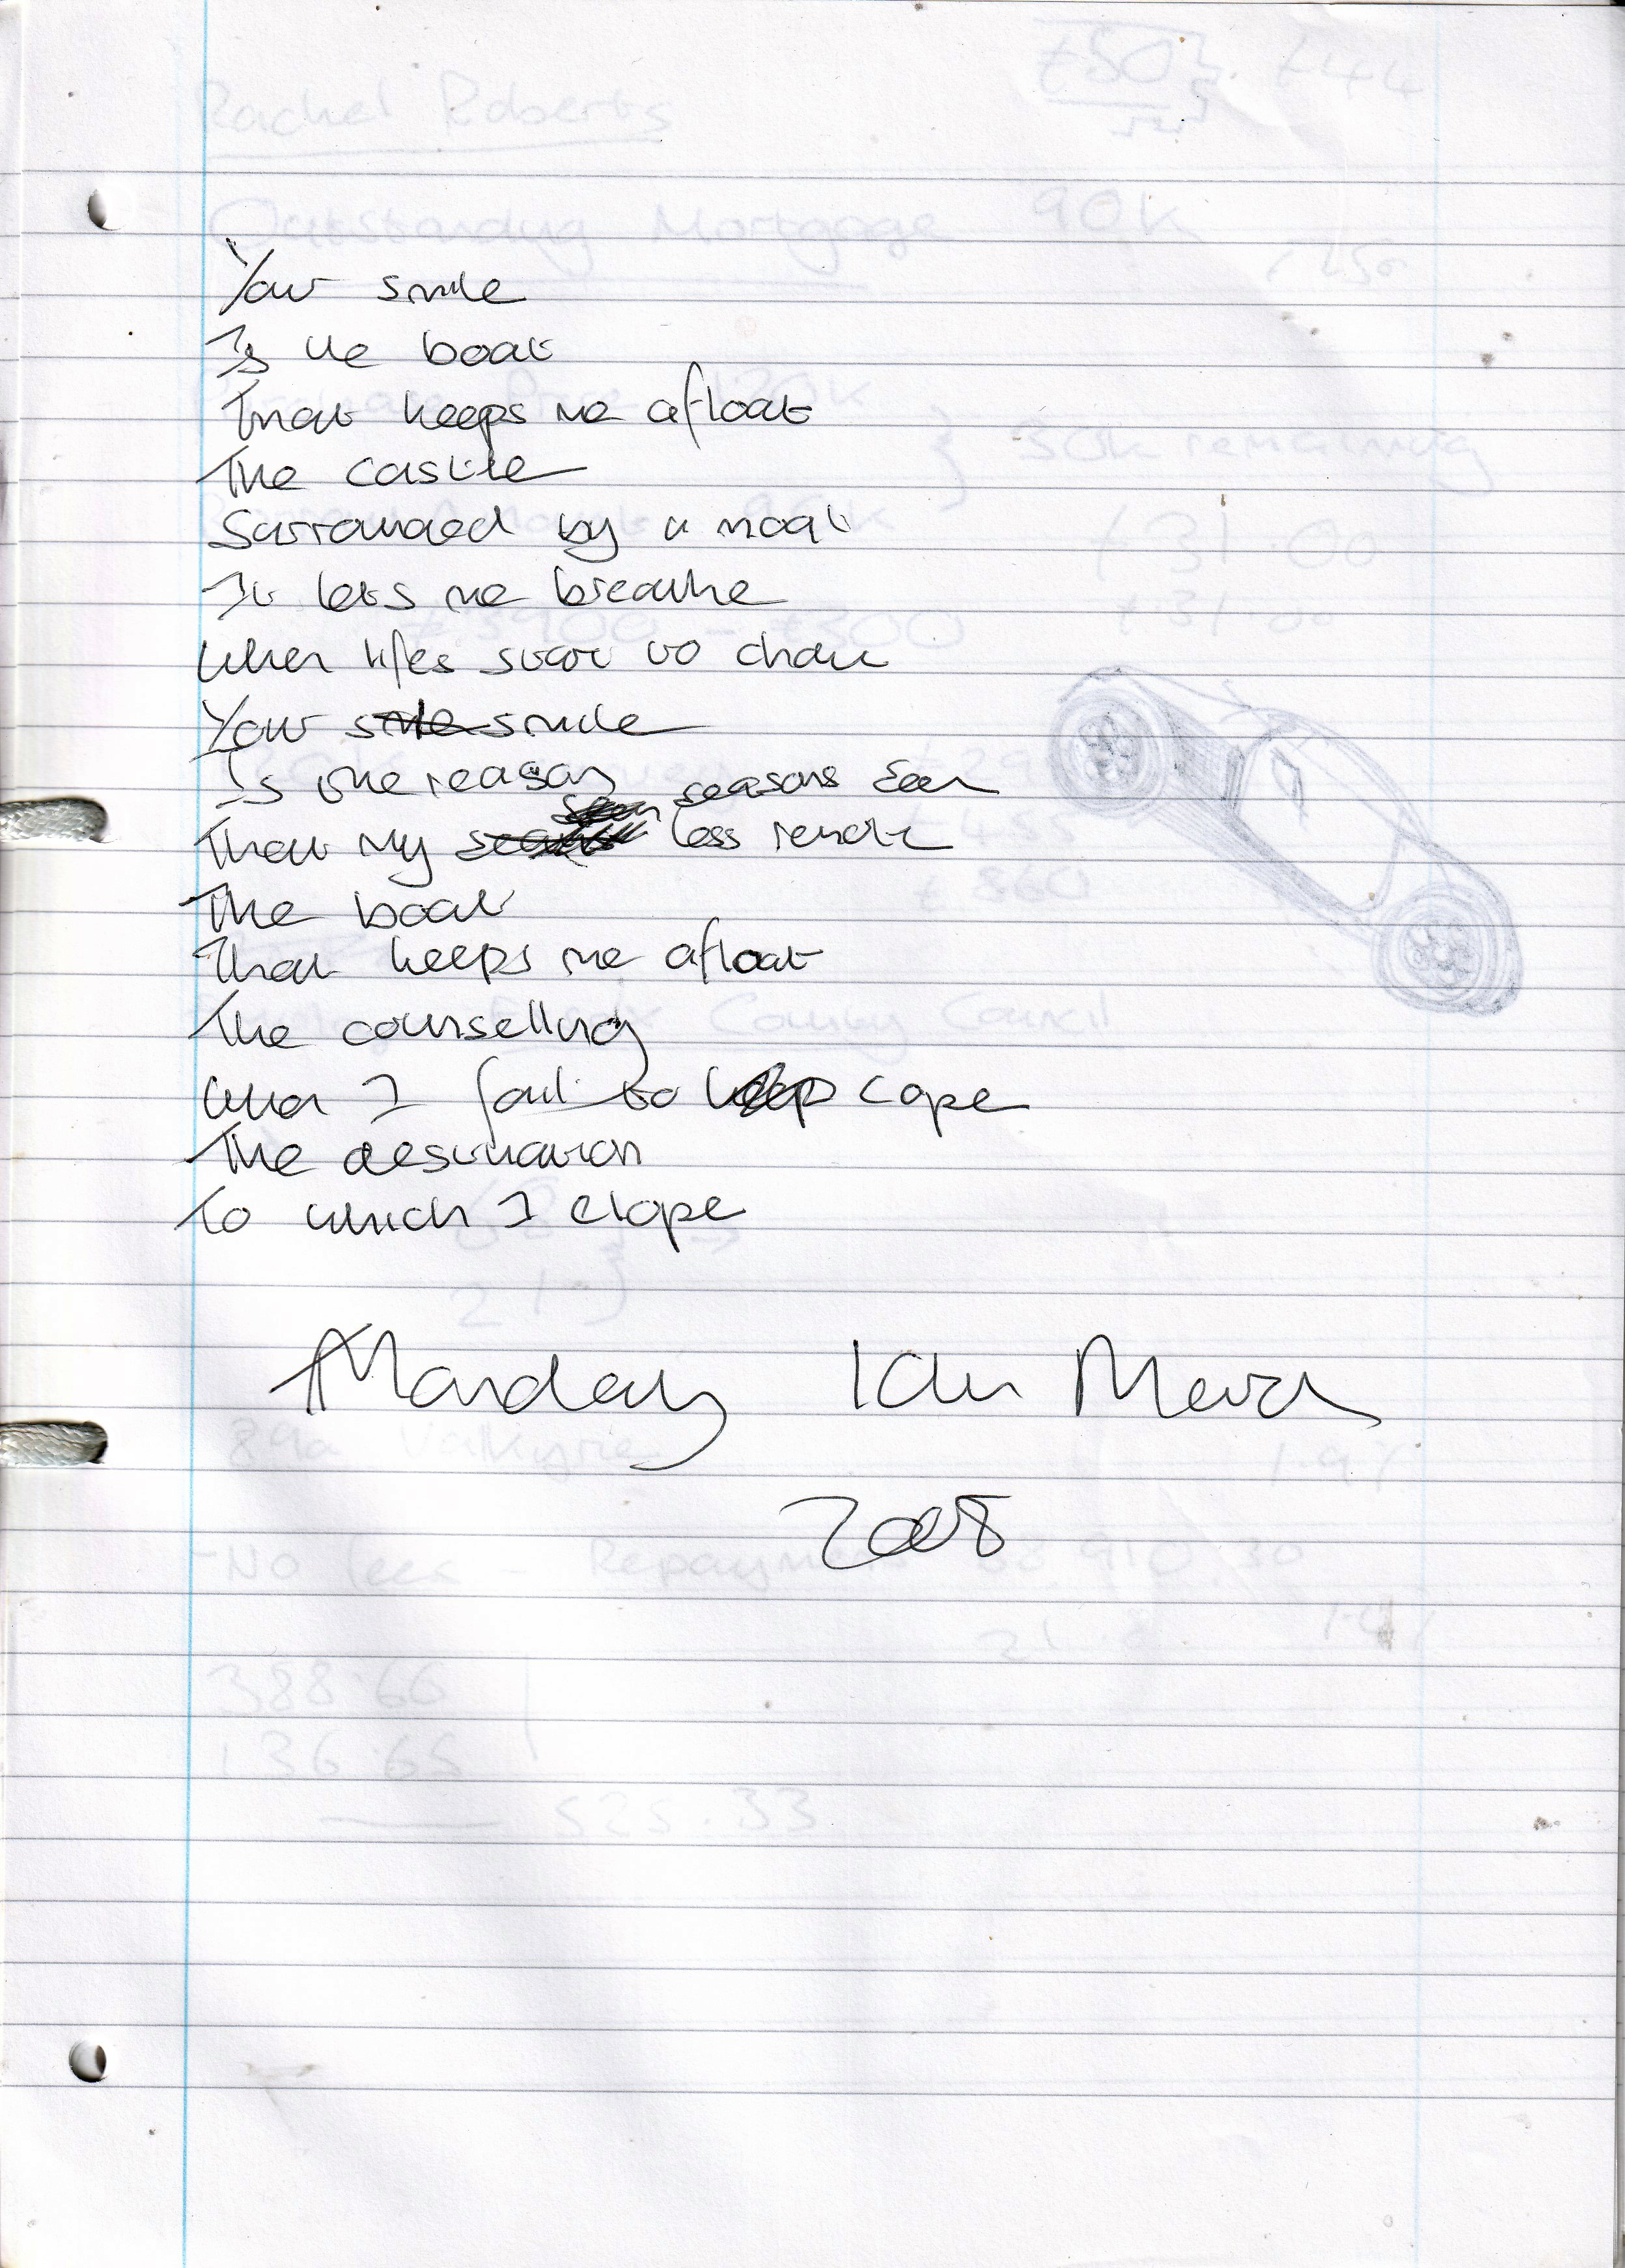 Your smile
Is the boat
That keeps me afloat
The castle
Surrounded by a moat
It lets me breathe
When lifes start to choke
Your smile
Is the reason
seasons seem
That my less remote
The boat
That keeps me afloat
The counselling
When I fail to cope
The destination
To which I elope
Monday 10th March
2008
Rachel Roberts
£50
Outstanding Mortgage 90k
30k remaining
£31.00
£31.00
£3900 - £300
£860
County Council
89a Valkyrie
1.9%
No fees - Repayment
388.66
136.65
525.33